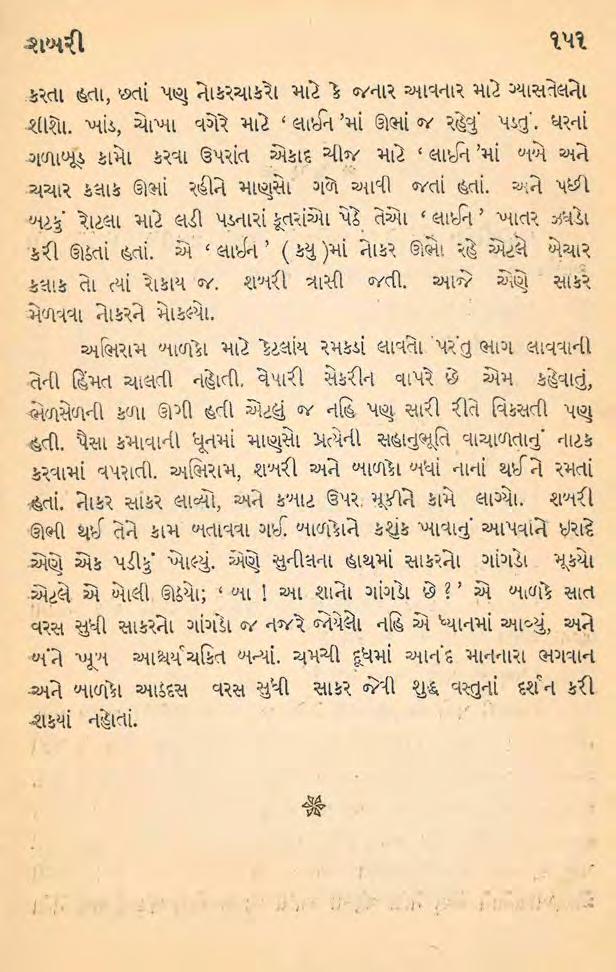 શબરી ૧૫૧
કરતા હતા, છતાં પણ નોકરચાકરો માટે કે જનાર આવનાર માટે ગ્યાસતેલનો
શીશો. ખાંડ, ચોખા વગેરે માટે ‘ લાઈન ’માં ઊભાં જ રહેવું પડતું. ઘરનાં
ગળાબૂડ કામો કરવા ઉપરાંત એકાદ ચીજ માટે ‘ લાઈન ’માં બબે અને
ચચાર કલાક ઊભાં રહીને માણસો ગળે આવી જતાં હતાં. અને પછી
બટકું રોટલા માટે લડી પડનારાં કૂતરાંઓ પેઠે તેઓ ‘ લાઈન ’ ખાતર ઝઘડો
કરી ઊઠતાં હતાં. એ ‘ લાઈન ’ ( ક્યુ )માં નોકર ઊભો રહે એટલે બેચાર
કલાક તો ત્યાં રોકાય જ. શબરી ત્રાસી જતી. આજે એણે સાકર
મેળવવા નોકરને મોકલ્યો.
અભિરામ બાળકો માટે કેટલાંય રમકડાં લાવતો પરંતુ ભાગ લાવવાની
તેની હિંમત ચાલતી નહોતી. વેપારી સેકરીન વાપરે છે એમ કહેવાતું,
ભેળસેળની કળા ઊગી હતી એટલું જ નહિ પણ સારી રીતે વિકસતી પણ
હતી. પૈસા કમાવાની ધૂનમાં માણસો પ્રત્યેની સહાનુભૂતિ વાચાળતાનું નાટક
કરવામાં વપરાતી. અભિરામ, શબરી અને બાળકો બધાં નાનાં થઈને રમતાં
હતાં. નોકર સાકર લાવ્યો, અને કબાટ ઉપર મૂકીને કામે લાગ્યો. શબરી
ઊભી થઈ તેને કામ બતાવવા ગઈ. બાળકોને કશુંક ખાવાનું આપવાને ઇરાદે
એણે એક પડીકું ખોલ્યું. એણે સુનીલના હાથમાં સાકરનો ગાંગડો મૂક્યો
એટલે એ બોલી ઊઠ્યો; ‘ બા ! આ શાનો ગાંગડો છે ? ’ એ બાળકે સાત
વરસ સુધી સાકરનો ગાંગડો જ નજરે જોયેલો નહિ એ ધ્યાનમાં આવ્યું, અને
બંને ખૂબ આશ્ચર્યચકિત બન્યાં. ચમચી દૂધમાં આનંદ માનનારા ભગવાન
અને બાળકો આઠદસ વરસ સુધી સાકર જેવી શુદ્ધ વસ્તુનાં દર્શન કરી
શક્યાં નહોતાં.